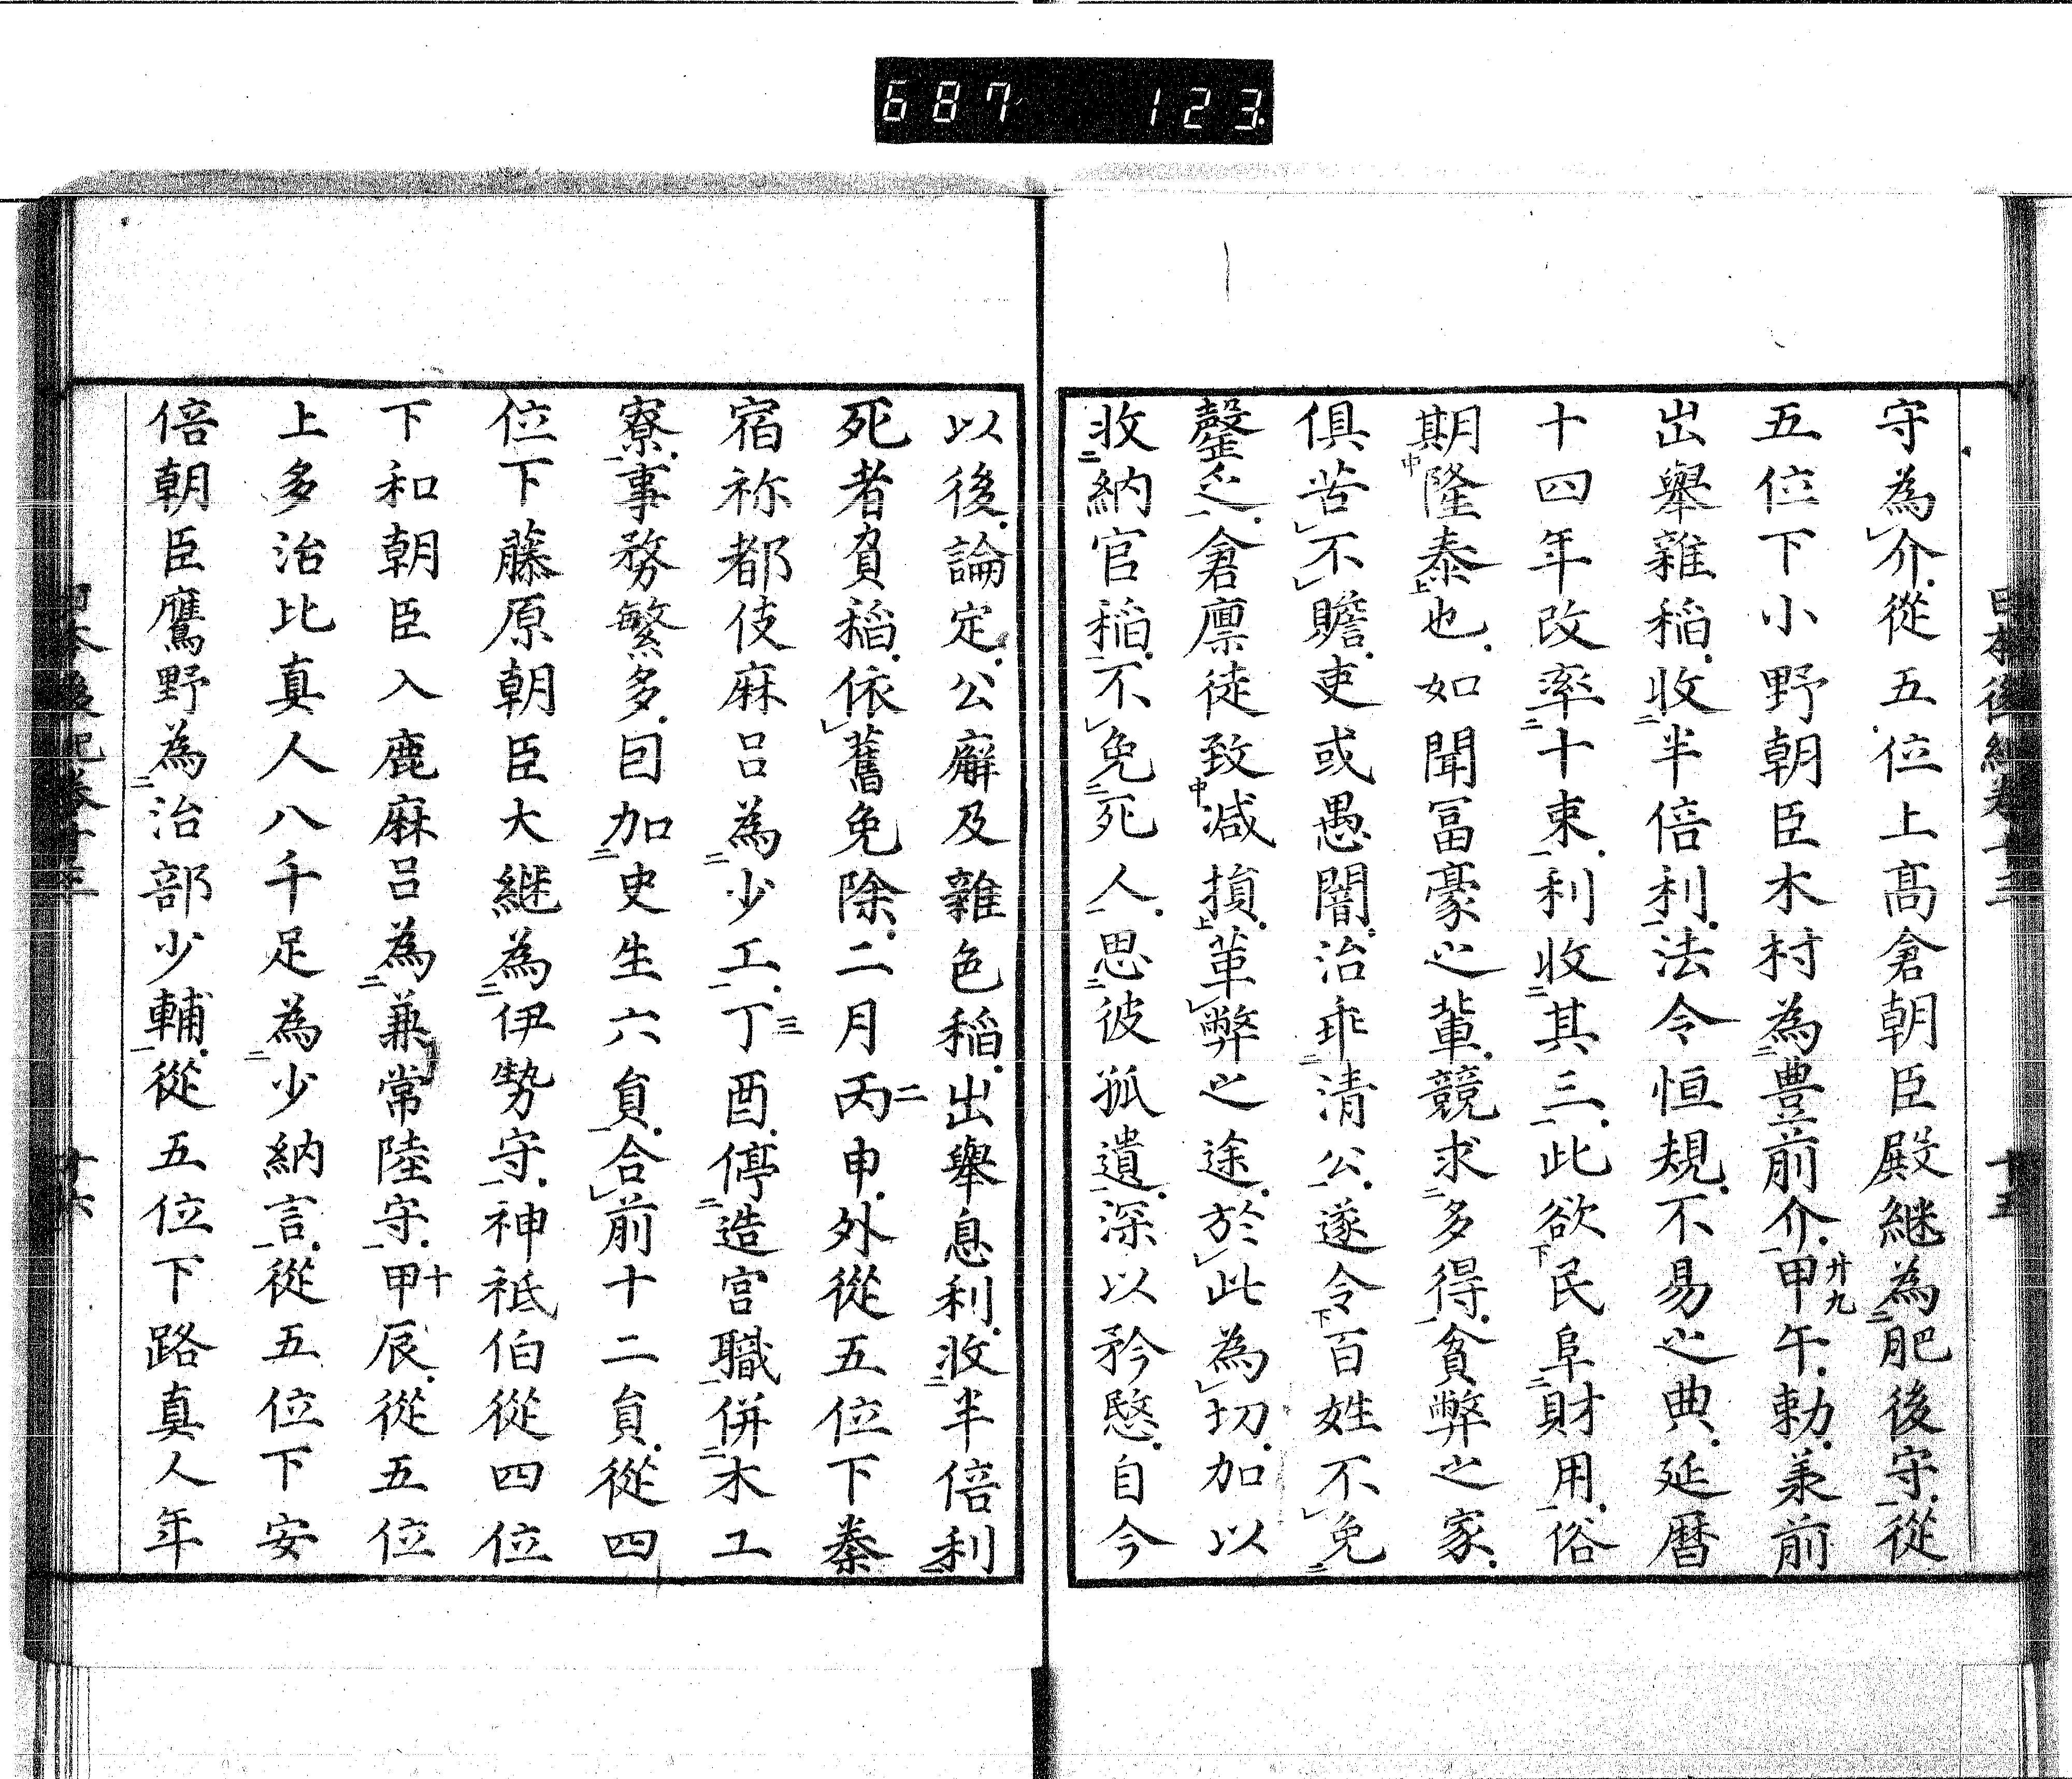 687 123.
日本後紀卷十三 十五
守為介從五位上髙倉朝臣殿継為肥後守從
五位下小野朝臣木村為豊前介甲午勅前
廿九
出舉雜稲收半倍利法令恒規不易之典延暦
十四年改率十束利收其三此欲民阜財用俗
期隆泰也如聞冨豪之軰競求多得貧弊之家
俱苦不贍吏或愚闇治乖清公遂令百姓不免
罄乏倉廪徒致减損革弊之途於此為切加以
收納官稲不免死人思彼孤遺深以矜愍自今
以後論定公廨及雜色稲出舉息利收半倍利
死者負稲依舊免除二月丙申外從五位下秦
二
宿祢都伎麻呂為少工丁酉停造宮職併木工
三
寮事務繁多因加史生六負合前十二負從四
位下藤原朝臣大継為伊勢守神祇伯從四位
下和朝臣入鹿麻呂為兼常陸守甲辰從五位
十
上多治比真人八千足為少納言從五位下安
倍朝臣鷹野為治部少輔從五位下路真人年
日本後紀卷十三 十六